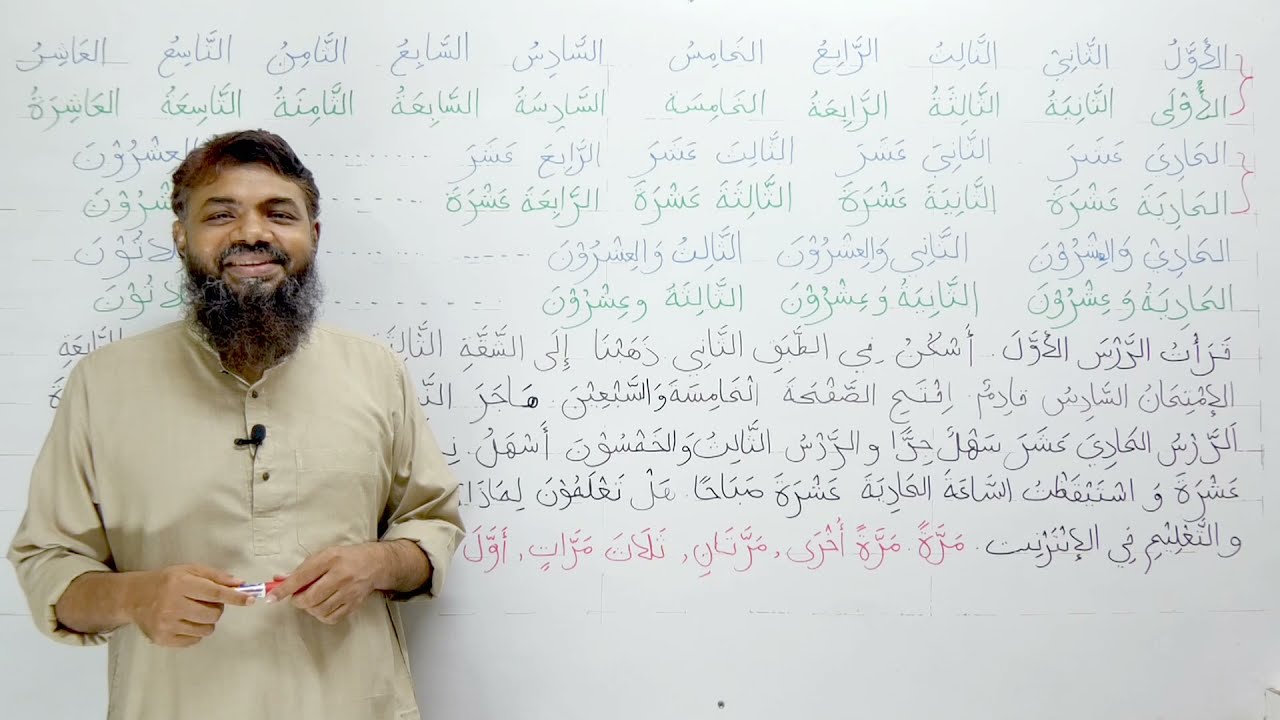 الأَوَّلُ الثَّانِيْ الثَّالِثُ الرَّابِعُ الخَامِسُ السَّادِسُ السَّابِعُ الثَّامِنُ التَّاسِعُ العَاشِرُ
الأُوْلَى الثَّانِيَةُ الثَّالِثَةُ الرَّابِعَةُ الخَامِسَة السَّادِسَةُ السَّابِعَةُ الثَّامِنَةُ التَّاسِعَةُ العَاشِرَةُ
الحَادِيَ عَشَرَ الثَّانِيَ عَشَرَ الثَّالِثَ عَشَرَ الرَّابِعَ عَشَرَ ............ العِشْرُوْنَ
الحَادِيَةَ عَشْرَةَ الثَّانِيَةَ عَشْرَةَ الثَّالِثَةَ عَشْرَةَ الرَّابِعَةَ عَشْرَةَ ............
الحَادِيْ وَالعِشْرُوْنَ الثَّانِي وَالعِشْرُوْنَ الثَّالِثُ وَالعِشْرُوْنَ ............
الحَادِيَةُ وَعِشْرُوْنَ الثَّانِيَةُ وَعِشْرُوْنَ الثَّالِثَةُ وعِشْرُوْنَ ............
قَرَأْتُ الدَّرْسَ الأَوَّلَ. أَسْكُنُ فِي الطَّبَقِ الثَّانِي. ذَهَبْنَا إِلَى الشَّقَّةِ الرَّابِعَةِ
الإِمْتِحَانُ السَّادِسُ قَادِمٌ. اِفْتَحِ الصَّفْحَةَ الْخَامِسَةَ وَالسَّبْعِيْنَ. هَاجَرَ
اَلدَّرْسُ الحَادِيَ عَشَرَ سَهْلٌ جِدًّا وَالدَّرْسُ الثَّالِثُ وَالخَمْسُوْنَ أَسْهَلُ.
عَشْرَةَ وَ اسْتَيْقَظْتُ السَّاعَةَ الحَادِيَةَ عَشْرَةَ صَبَاحًا. هَلْ تَعْلَمُوْنَ لِمَاذَا؟
وَالتَّعْلِيْمِ فِي الإِنْتَرْنِت. مَرَّةً, مَرَّةً أُخْرَى, مَرَّتَانِ, ثَلَاثَ مَرَّاتٍ, أَوَّلَ